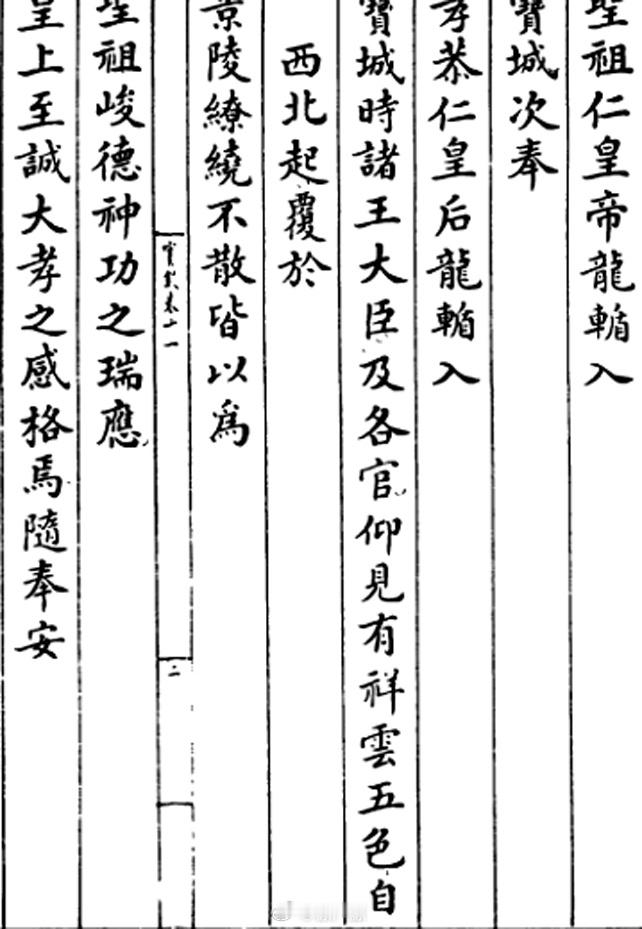 聖祖仁皇帝龍輴入
寶城次奉
孝恭仁皇后龍輴入
寶城時諸王大臣及各官仰見有祥雲五色自
西北起覆於
景陵繚繞不散皆以爲
實錄卷十一
二
聖祖峻德神功之瑞應
皇上至誠大孝之感格焉隨奉安